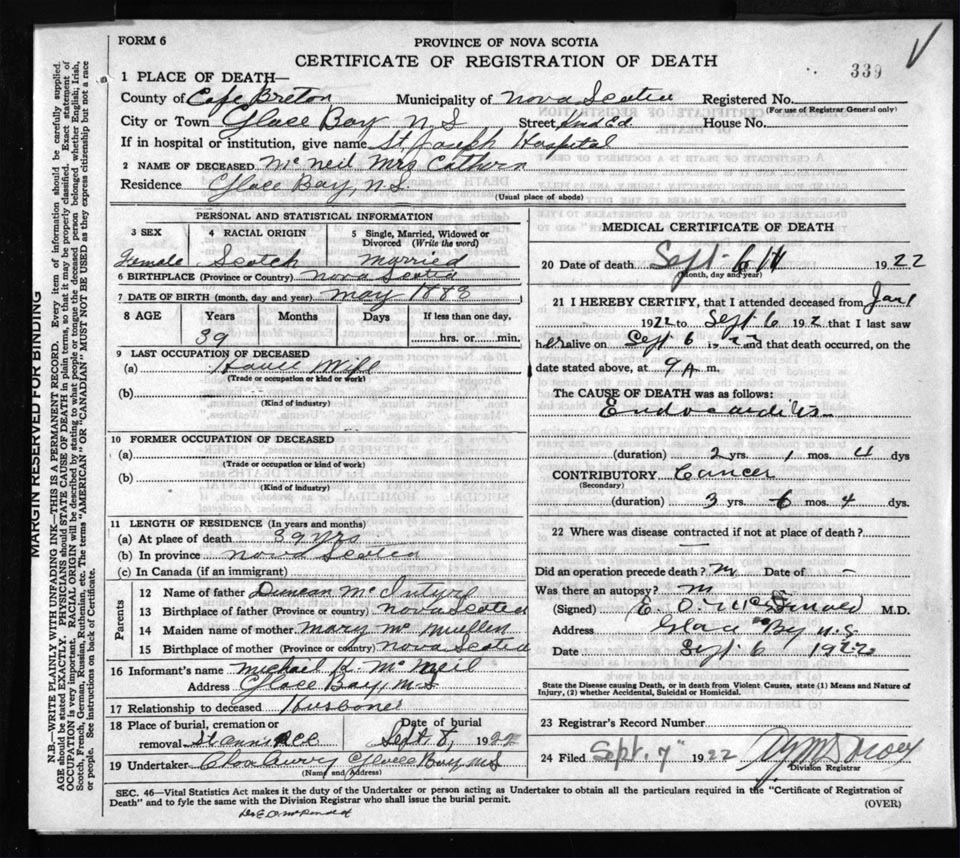 FORM 6
PROVINCE OF NOVA SCOTIA
CERTIFICATE OF REGISTRATION OF DEATH
339
1 PLACE OF DEATH—
County of Cape Breton Municipality of Nova Scotia Registered No.
(For use of Registrar General only)
City or Town Glace Bay N S Street House No.
If in hospital or institution, give name St Joseph Hospital
2 NAME OF DECEASED McNeil Mrs Cathern
Residence Glace Bay, N.S.
(Usual place of abode)
PERSONAL AND STATISTICAL INFORMATION
3 SEX
Female
4 RACIAL ORIGIN
Scotch
5 Single, Married, Widowed or
Divorced (Write the word)
Married
6 BIRTHPLACE (Province or Country) Nova Scotia
7 DATE OF BIRTH (month, day and year) May 1883
8 AGE
Years
39
Months
Days
If less than one day,
hrs. or min.
9 LAST OCCUPATION OF DECEASED
(a) House Wife
(Trade or occupation or kind of work)
(b)
(Kind of industry)
10 FORMER OCCUPATION OF DECEASED
(a)
(Trade or occupation or kind of work)
(b)
(Kind of industry)
11 LENGTH OF RESIDENCE (In years and months)
(a) At place of death 39 yrs
(b) In province Nova Scotia
(c) In Canada (if an immigrant)
Parents
12 Name of father Duncan McIntyre
13 Birthplace of father (Province or country) Nova Scotia
14 Maiden name of mother Mary McMullen
15 Birthplace of mother (Province or country) Nova Scotia
16 Informant's name Michael K. McNeil
Address Glace Bay, N S
17 Relationship to deceased Husband
18 Place of burial, cremation or
removal
Date of burial
Sept. 8, 1922
19 Undertaker Glace Bay N S
(Name and Address)
MEDICAL CERTIFICATE OF DEATH
20 Date of death Sept 6 1922
(Month, day and year)
21 I HEREBY CERTIFY, that I attended deceased from
1922 to Sept 6 192 that I last saw
her alive on Sept 6 and that death occurred, on the
date stated above, at 9 A m.
The CAUSE OF DEATH was as follows:
Endocarditis
(duration) 2 yrs. 1 mos. 4 dys
CONTRIBUTORY Cancer
(Secondary)
(duration) 3 yrs. 6 mos. 4 dys.
22 Where was disease contracted if not at place of death?
Did an operation precede death? Date of -
Was there an autopsy?
(Signed) E. O. McDonald M.D.
Address Glace Bay N.S
Date Sept 6 1922
State the Disease causing Death, or in death from Violent Causes, state (1) Means and Nature of
Injury, (2) whether Accidental, Suicidal or Homicidal.
23 Registrar's Record Number
24 Filed Sept. 7 1922
Division Registrar
SEC. 46—Vital Statistics Act makes it the duty of the Undertaker or person acting as Undertaker to obtain all the particulars required in the "Certificate of Registration of
Death" and to fyle the same with the Division Registrar who shall issue the burial permit.
(OVER)
Dr E O McDonald
MARGIN RESERVED FOR BINDING
N.B.—WRITE PLAINLY WITH UNFADING INK—THIS IS A PERMANENT RECORD. Every item of information should be carefully supplied.
AGE should be stated EXACTLY. PHYSICIANS should STATE CAUSE OF DEATH in plain terms, so that it may be properly classified. Exact statement of
OCCUPATION is very important. RACIAL ORIGIN will be described by stating to what people or tongue the deceased person belonged whether English, Irish,
Scotch, French, German, Russian, Ruthenian, etc. The terms "AMERICAN" OR "CANADIAN" MUST NOT BE USED as they express citizenship but not a race
or people. See instructions on back of Certificate.